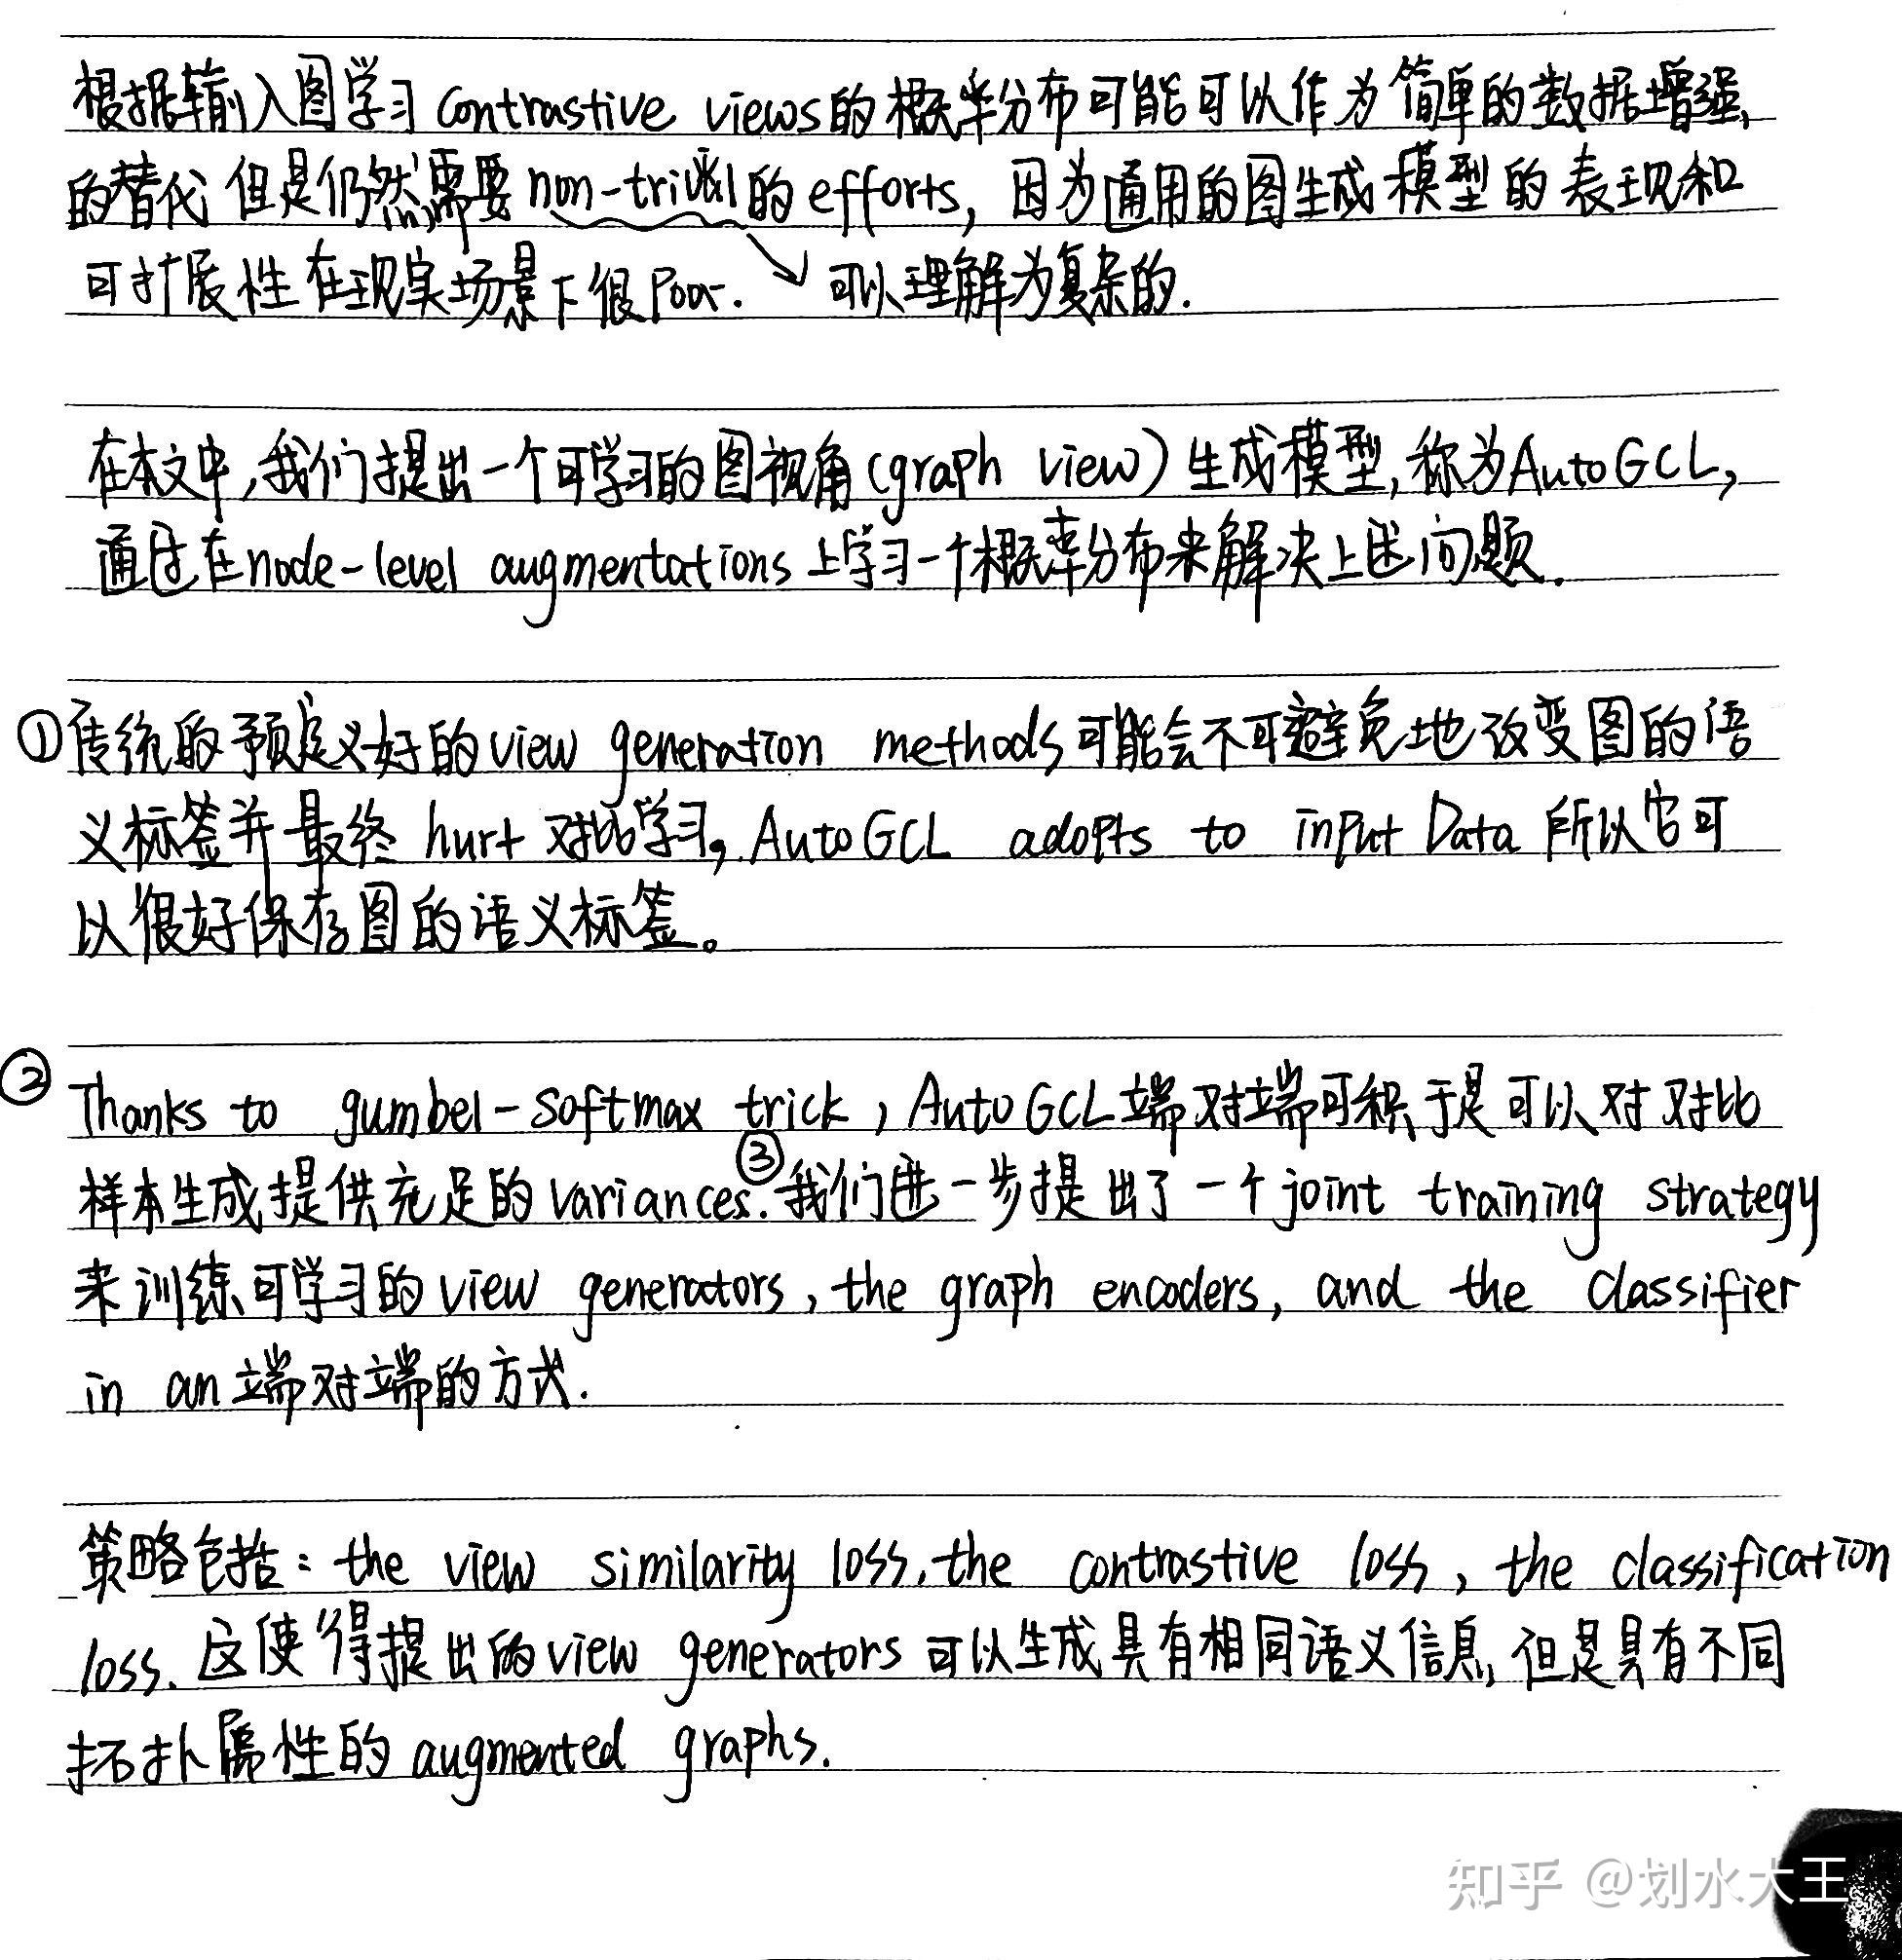 根据输入图学习 contrastive views的概率分布可能可以作为简单的数据增强,
的替代 但是仍然需要 non-trivial的 efforts, 因为通用的图生成模型的表现和
可扩展性在现实场景下很 Poor. 可以理解为复杂的.
在本文中,我们提出一个可学习的图视角(graph view)生成模型,称为AutoGCL,
通过在node-level augmentations上学习一个概率分布来解决上述问题.
①传统的预定义好的view generation methods可能会不可避免地改变图的语
义标签并最终 hurt 对比学习, AutoGCL adopts to input Data 所以它可
以很好保存图的语义标签。
② Thanks to gumbel-softmax trick, AutoGCL端对端可积于是可以对对比
样本生成提供充足的variances.③我们进一步提出了一个joint training strategy
来训练可学习的view generators, the graph encoders, and the classifier
in an端对端的方式.
策略包括: the view similarity loss, the contrastive loss, the classification
loss. 这使得提出的view generators 可以生成具有相同语义信息, 但是具有不同
拓扑属性的augmented graphs.
知乎 @划水大王